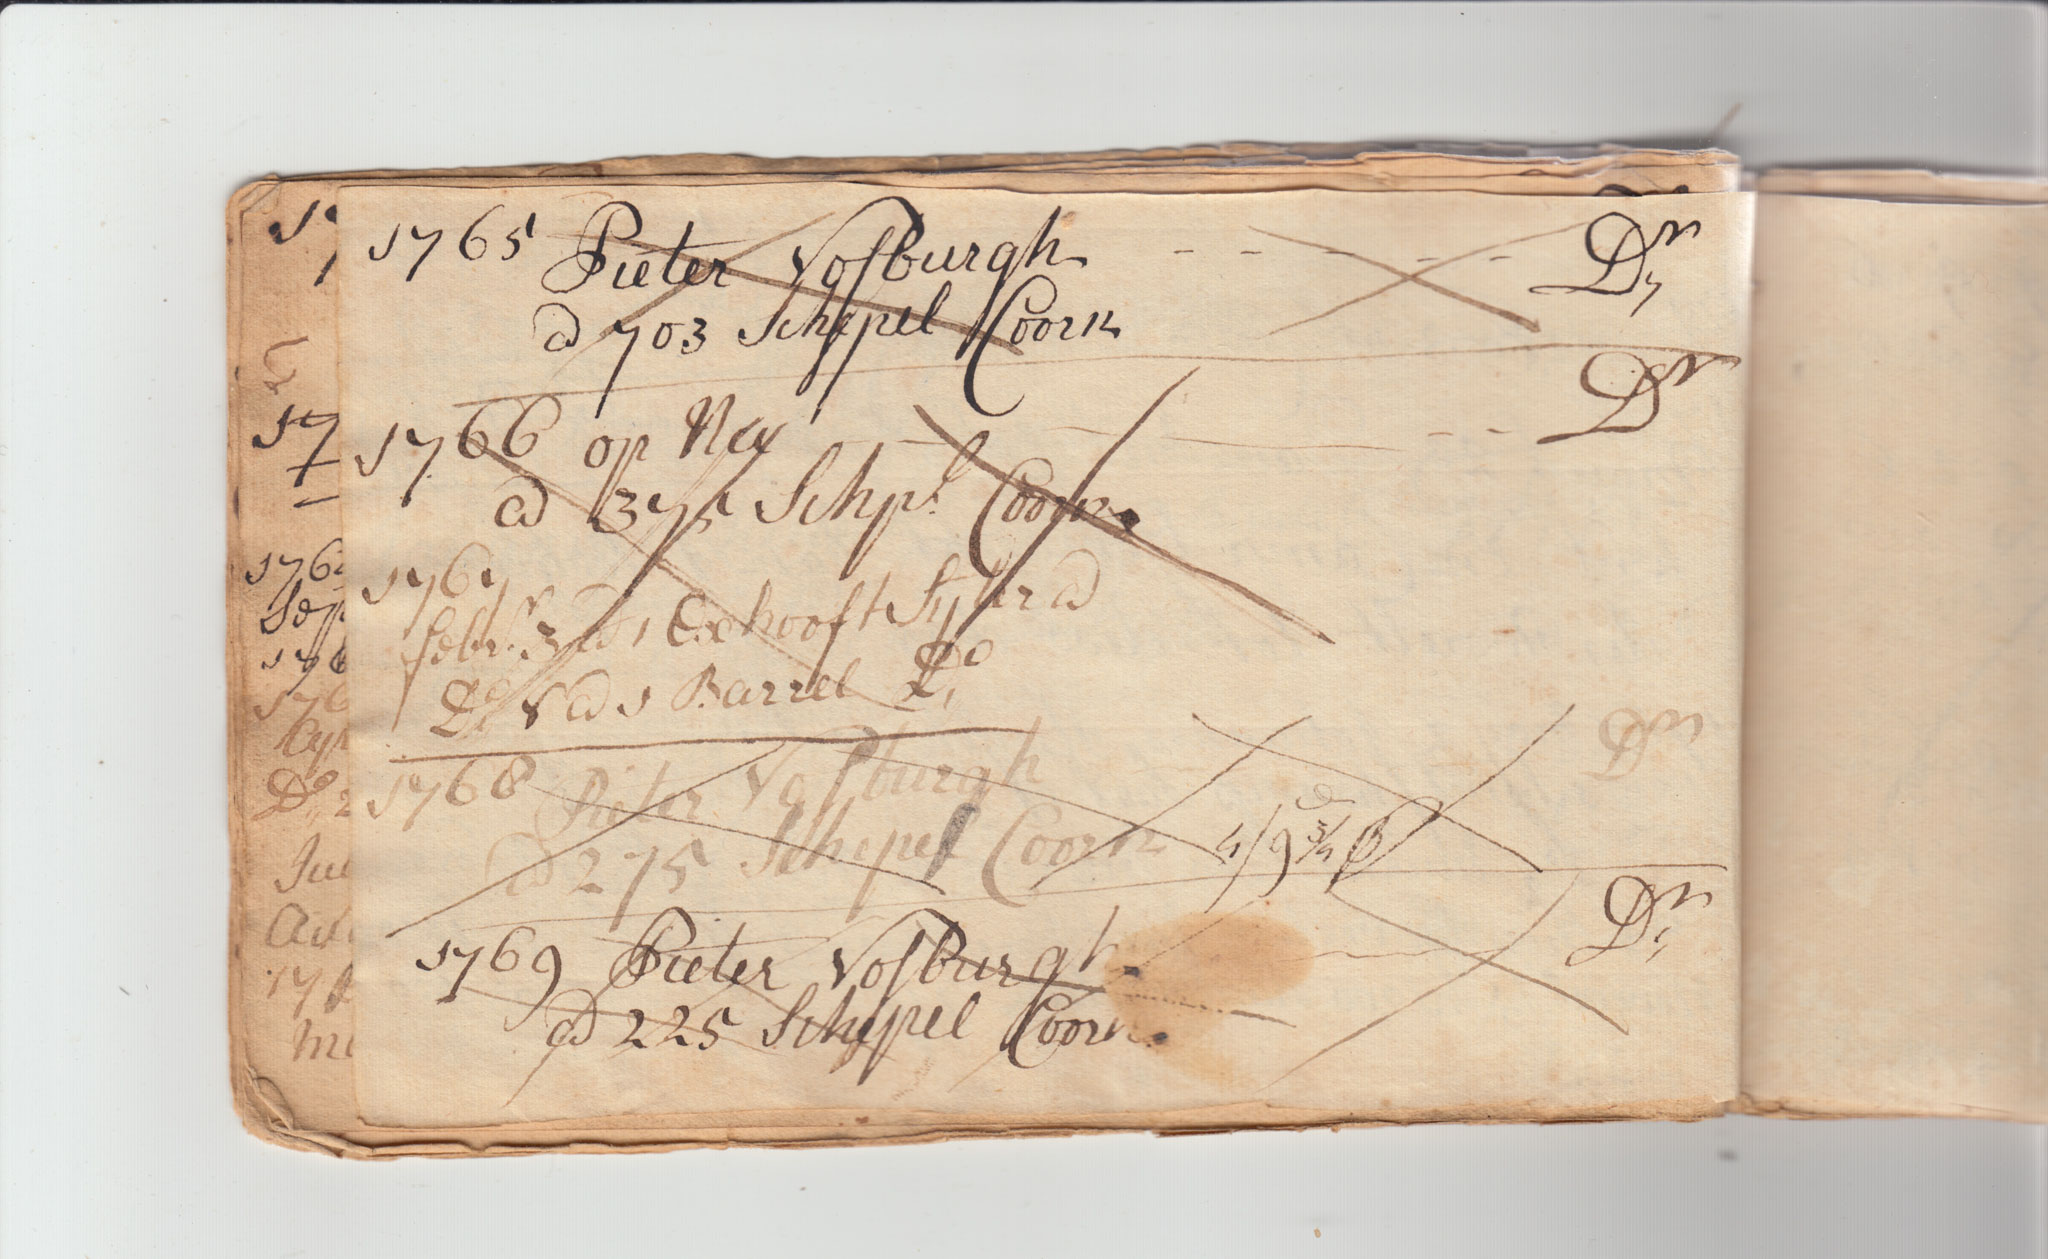 1765 Pieter Vosburgh - - - - - Dr
@ 703 Schepel Coorn
1766 op New - - Dr
@ 375 Schpl Coorn
1767
febr. 3 @ 1 Oxhooft Syder @
Do 8 @ 1 Barrel Do
1768 Pieter Vosburgh Dr
@ 275 Schepel Coorn 4/9 3/4
1769 Pieter Vosburgh Dr
@ 225 Schepel Coorn
1762
Sep
176
176
Apr
Do 2